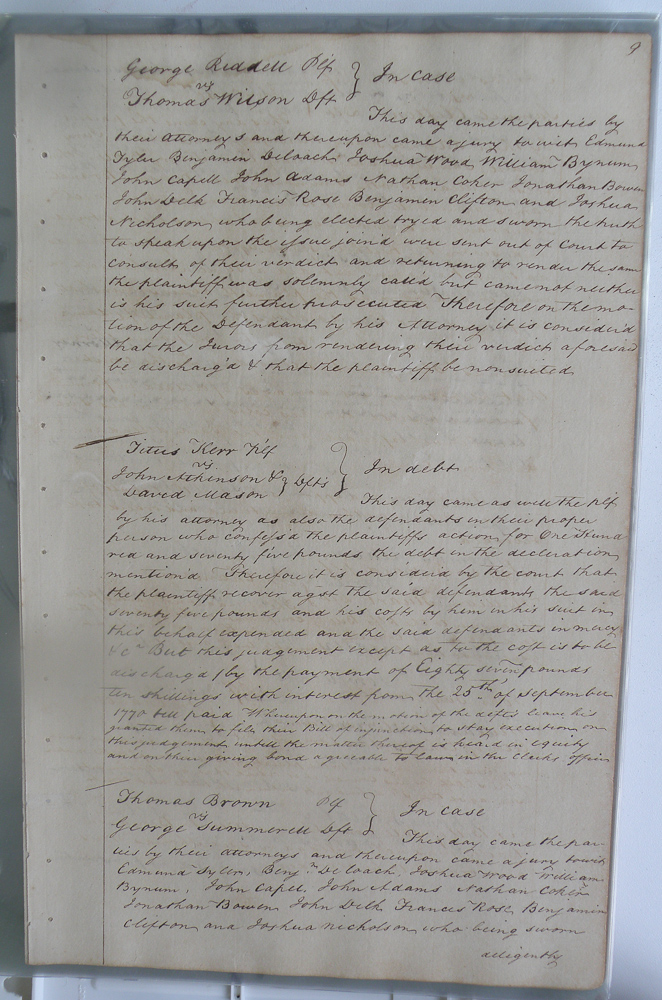 9
George Riddell Plf } In Case
vs
Thomas Wilson Dft
This day came the parties by
their attorneys and thereupon came a jury to wit Edmund
Tyler Benjamin Deloach Joshua Wood William Bynum
John Capell John Adams Nathan Coker Jonathan Bowen
John Delk Francis Rose Benjamin Clifton and Joshua
Nicholson who being elected tryed and sworn the truth
to speak upon the issue join'd were sent out of Court to
consult of their verdict and returning to render the same
the plaintiff was solemnly call'd but came not neither
is his suit further prosecuted Therefore on the mo-
tion of the Defendant by his Attorney it is consider'd
that the Jurors from rendering their verdict aforesaid
be discharg'd & that the plaintiff be nonsuited
Titus Kerr Plf
vs
John Atkinson & } Dfts } In debt
David Mason
This day came as well the plf
by his attorney as also the defendants in their proper
person who confess'd the plaintiffs action for One Hund
red and seventy five pounds the debt in the declaration
mention'd Therefore it is consider'd by the court that
the plaintiff recover agst the said defendants the said
seventy five pounds and his costs by him in his suit in
this behalf expended and the said defendants in mercy
&c But this judgement except as to the cost is to be
discharg'd by the payment of Eighty seven pounds
ten shillings with interest from the 25th of September
1770 till paid Whereupon on the motion of the defts leave is
granted them to file their Bill of injunction to stay execution on
this judgement untill the matter thereof is heard in equity
and on their giving bond agreeable to law in the Clerks office
Thomas Brown Plf } In Case
vs
George Summerell Dft
This day came the par-
ties by their attorneys and thereupon came a jury towit
Edmund Tyler, Benjn Deloach, Joshua Wood William
Bynum, John Capel, John Adams Nathan Coker
Jonathan Bowen John Delk Francis Rose Benjamin
Clifton and Joshua Nicholson who being sworn
diligently